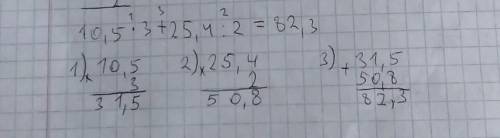 1 3 2
10,5 · 3 + 25,4 · 2 = 82,3
1) × 10,5 2) × 25,4 3) + 31,5
3 2 50,8
31,5 50,8 82,3